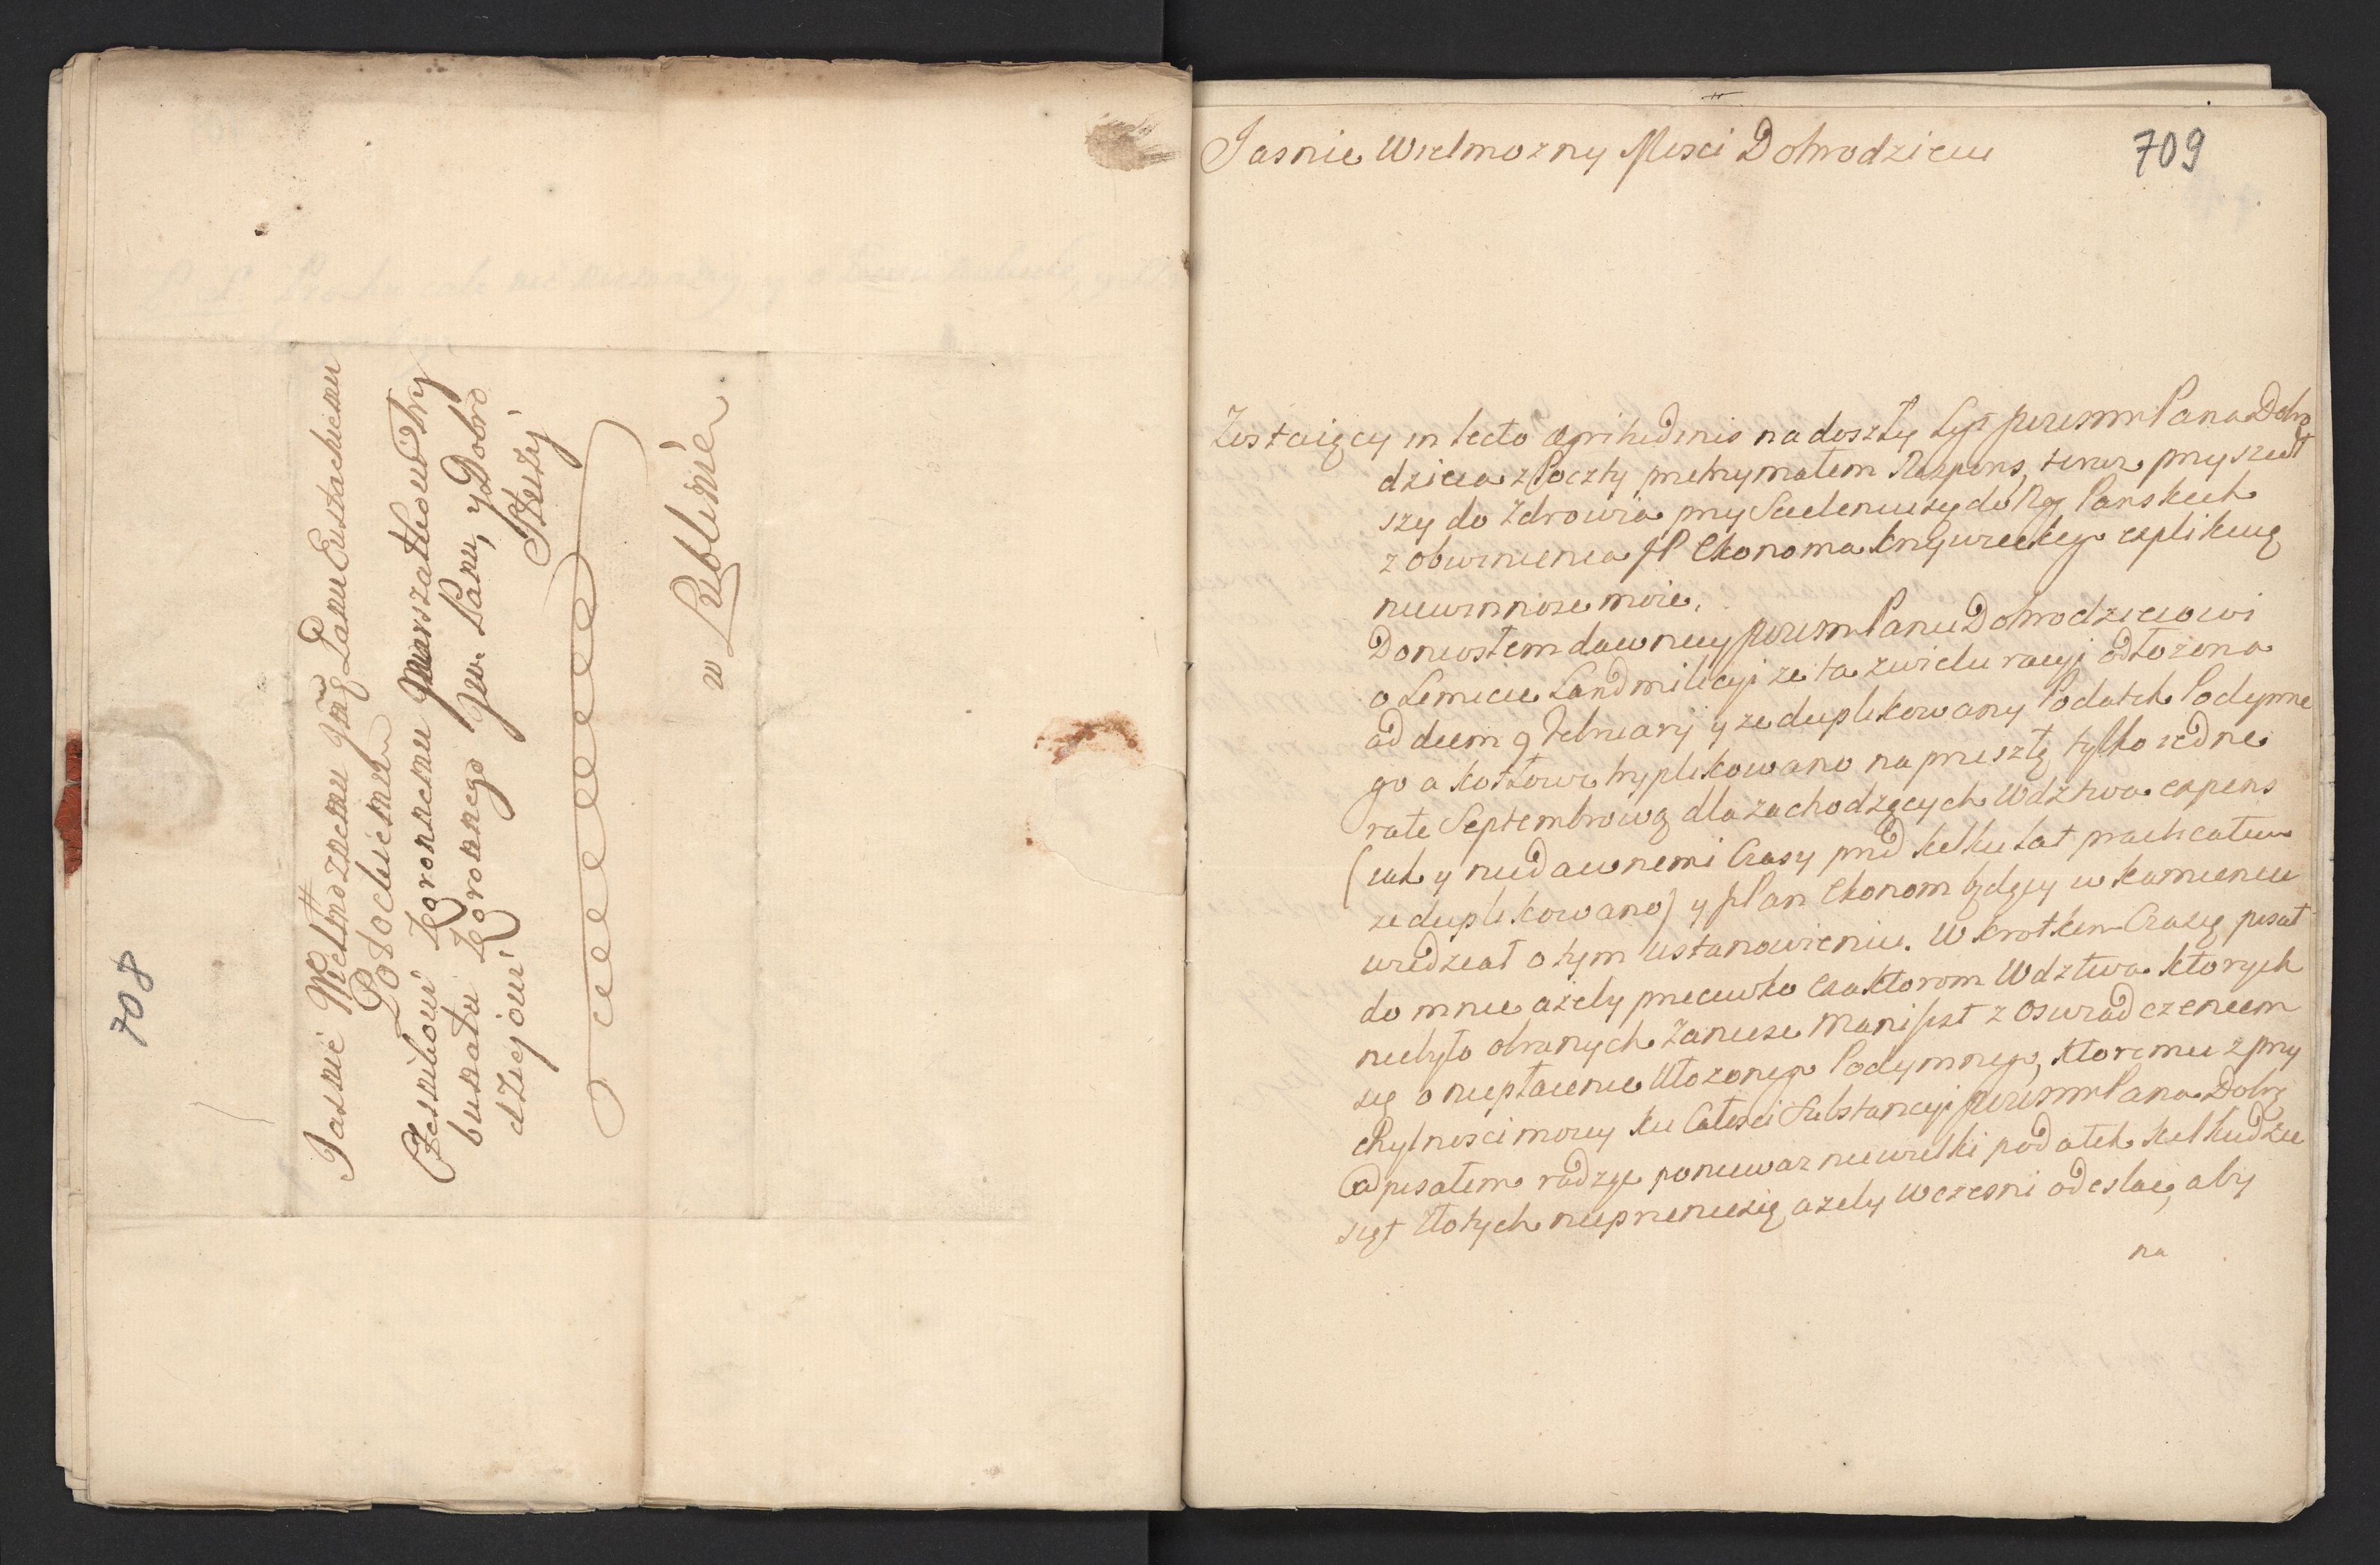 708
Jasnie Wielmoznemu Jmc Panu Eustachiemu
Potockiemu
Czesnikowi Koronnemu Marszałkowi Try
bunału Koronnego Jw. Panu, y Dobro
dziejowi Służy
w Lublinie
709
Jasnie Wielmozny Mosci Dobrodzieiu
Zostaiący in lecto na doszły Lyst Pana Dobro
dzieia z Poczty przetrzymałem Respons, teraz przyszedł
szy do Zdrowia przy Scieleniu się do Nog Panskich
z obwinienia JP Ekonoma explikuię
niewinnosc moie.
Doniosłem dawniey Panu Dobrodzieiowi
o Landmilicyi ze ta z wielu racyi odłozona
ad diem 9 Februarij y ze duplikowany Podatek Podymne
go a kotłowe tryplikowano na przeszłą tylko iedne
rate Septembrową dla zachodzących Wdztwa expens
(iak y niedawnemi Czasy przed kilku lat practicatum
ze duplikowano) y JPan Ekonom będący w Kamiencu
wiedział o tym ustanowieniu. W krotkim Czasie pisał
do mnie azeby przeciwko exaktorom Wdztwa ktorych
niebyło obranych Zaniesc Manifest z Oswiadczeniem
się o niepłacenie Ułozonego Podymnego, ktoremu z przy
chylnosci moiey ku Całosci Substancyi Pana Dobrz
Odpisałem radząc poniewaz niewielki podatek kilkudzie
siąt Złotych nieprzeniesie, azeby Wczesni odesłac, aby
na